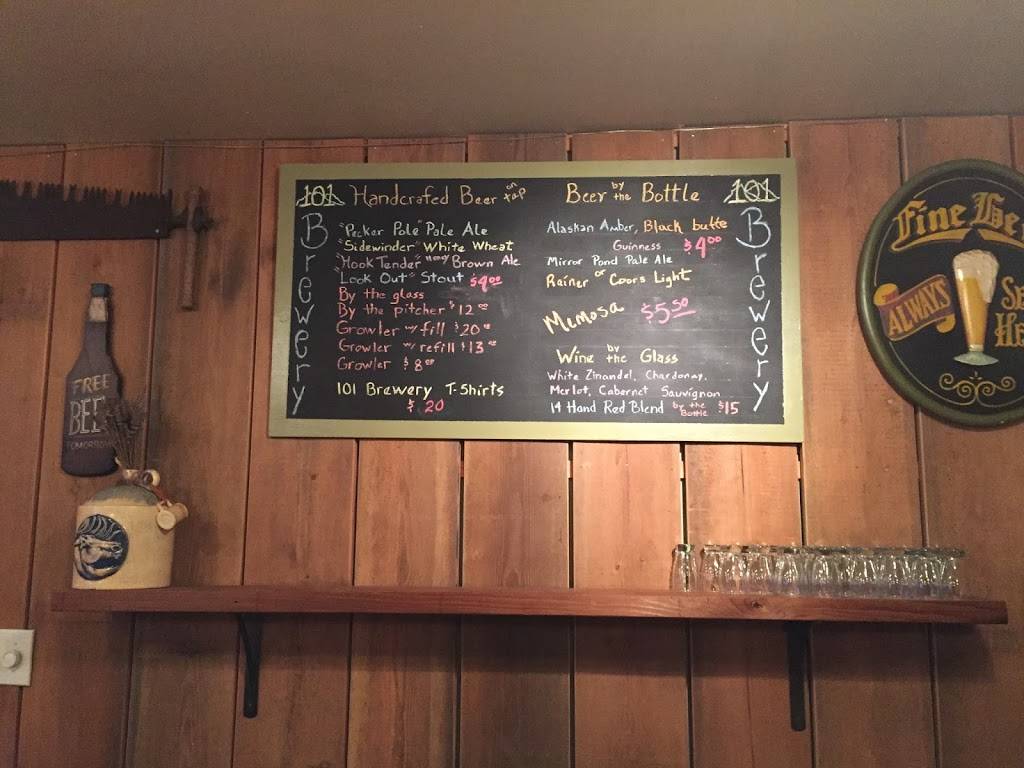 101 Handcrafed Beer on tap
Brewery
"Pecker Pole" Pale Ale
"Sidewinder" White Wheat
"Hook Tender" Honey Brown Ale
"Look Out" Stout $4.00
By the glass
By the pitcher $12.00
Growler w/ fill $20.00
Growler w/ refill $13.00
Growler $8.00
101 Brewery T-Shirts
$20
Beer by the Bottle 101
Brewery
Alaskan Amber, Black butte
Guinness $4.00
Mirror Pond Pale Ale
Rainer or Coors Light
Mimosa $5.50
Wine by the Glass
White Zinandel, Chardonay,
Merlot, Cabernet Sauvignon
14 Hand Red Blend by the Bottle $15
FREE
BEER
TOMORROW
Fine
ALWAYS